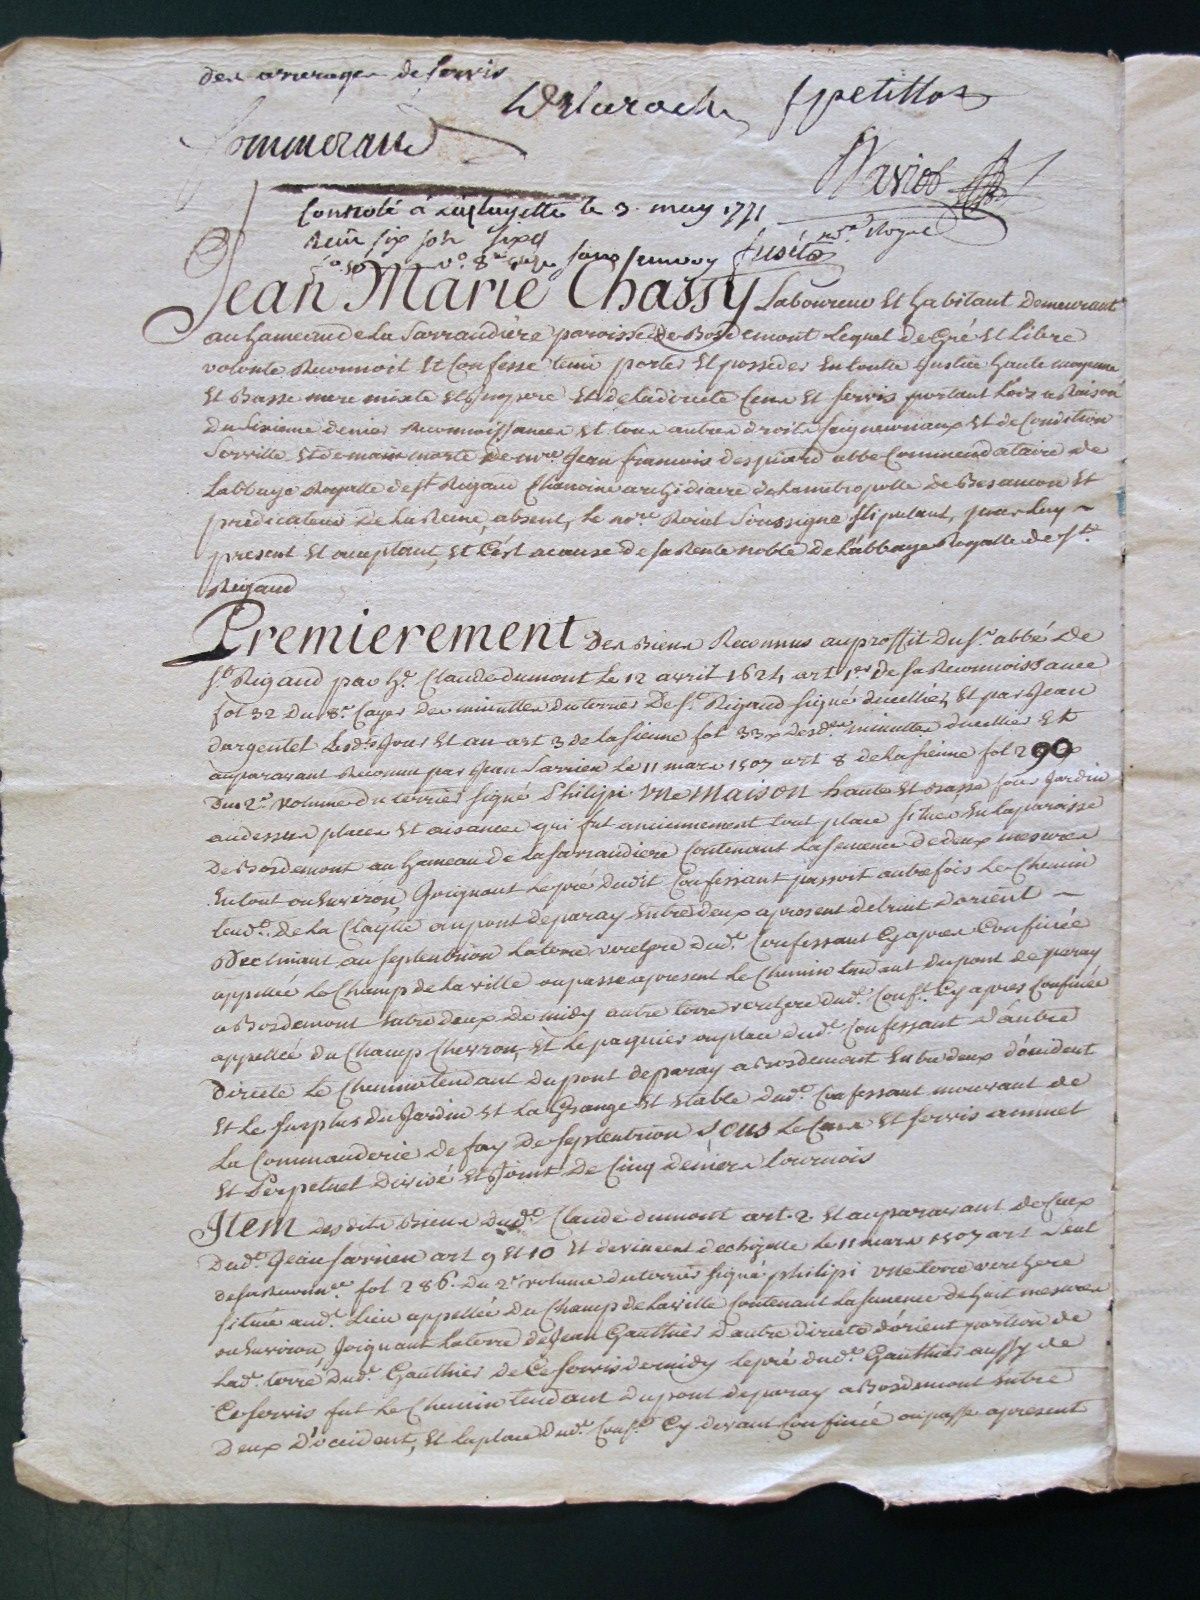 des arrerages de servis
Delaroche Petittot
Sommerand
Naviot
Controlé à Laclayette le 3. may 1771
Reçu six sols six d nore Royal
vo 8 sans renvoy
Jean Marie Chassy Laboureur Et habitant demeurant
au hameau de La Sarraudière paroisse de Bosdemont Lequel de Gré Et Libre
volonte Reconnoit Et Confesse tenir porter Et posseder En toutte Justice haute moyenne
Et Basse mere mixte Et Impere Et de La directe Cens Et servis portant Lods a Raison
Du Sixieme denier Reconnoissances Et tous autres droits seigneuriaux Et de Condition
Serville Et de main morte de mre Jean francois despiard abbé Commendataire de
Labbaye Royalle de st Rigaud Chanoine archidiacre de La metropolle de Besancon Et
predicateur De La Reine, absent, le nore Roial Soussigné stipulant, pour Luy ~
present Et acceptant, Et C'est acause de sa Rente noble de L'abbaye Royalle de st
Rigaud
Premierement Des Biens Reconnus au proffit du sr abbé De
st Rigaud par he Claude dumont le 12 avril 1624 art 1er de sa Reconnoissance
fol 32 Du 8e Cayer des minuttes du terrier De st Rigaud signé ducellier, Et par Jean
dargentel Lesdts Jour Et an art 3 de la sienne fol 33 desdtes minuttes ducellier Et
auparavant Reconnu par Jean Sarrien Le 11 mars 1507 art 8 de La sienne fol 290
Du 2e volume du terrier signé Philipi. Une Maison haute Et Basse four Jardin
audessus places Et aisances qui fut anciennement tout place située En La paroisse
De Bosdemont au hameau de La sarraudiere Contenant La semence de deux mesures
En tout ou Environ, Joignant Le pré dudit Confessant passoit autrefois Le Chemin
tendt. de La Clayette au pont de paray Entre deux a present detruit d'orient ~
Declinant au septentrion La terre verchere dudt Confessant Cy apres Confinée
appellée Le Champ de La ville ou passe a present Le Chemin tendant du pont de paray
a Bosdemont Entre deux De midy autre terre verchere dudt Conft Cy apres Confinée
appellée du Champ Chevron, Et Le paquier ou place dudt Confessant d'autre
directe Le Chemin tendant du pont de paray a Bosdemont Entre deux d'occident
Et Le surplus du Jardin Et La Grange Et Etable dudt Confessant mouvant de
La Commanderie de fay De septentrion Sous Le Cens Et servis annuel
Et Perpetuel Divisé Et Joint De Cinq deniers tournois
Item desdits Biens dudt Claude dumont art. 2. Et auparavant de Ceux
Dudt Jean Sarrien art 9 Et 10 Et de vincent dechizelle Le 11 mars 1507 art Seul
de sa Reconnce fol 286. Du 2e volume du terrier signé philipi Une terre verchere
située audt Lieu appellée Du Champ de La ville Contenant La semence de huit mesures
ou Environ, Joignant La terre de Jean Gauthier d'autre directe d'orient portion de
Ladt terre dudt Gauthier de Ce servis de midy Le pré dudt Gauthier aussy de
Ce servis fut Le Chemin tendant du pont de paray a Bosdemont Entre
Deux D'occident, Et La place dudt Conft Cy devant Confinée ou passe apresent